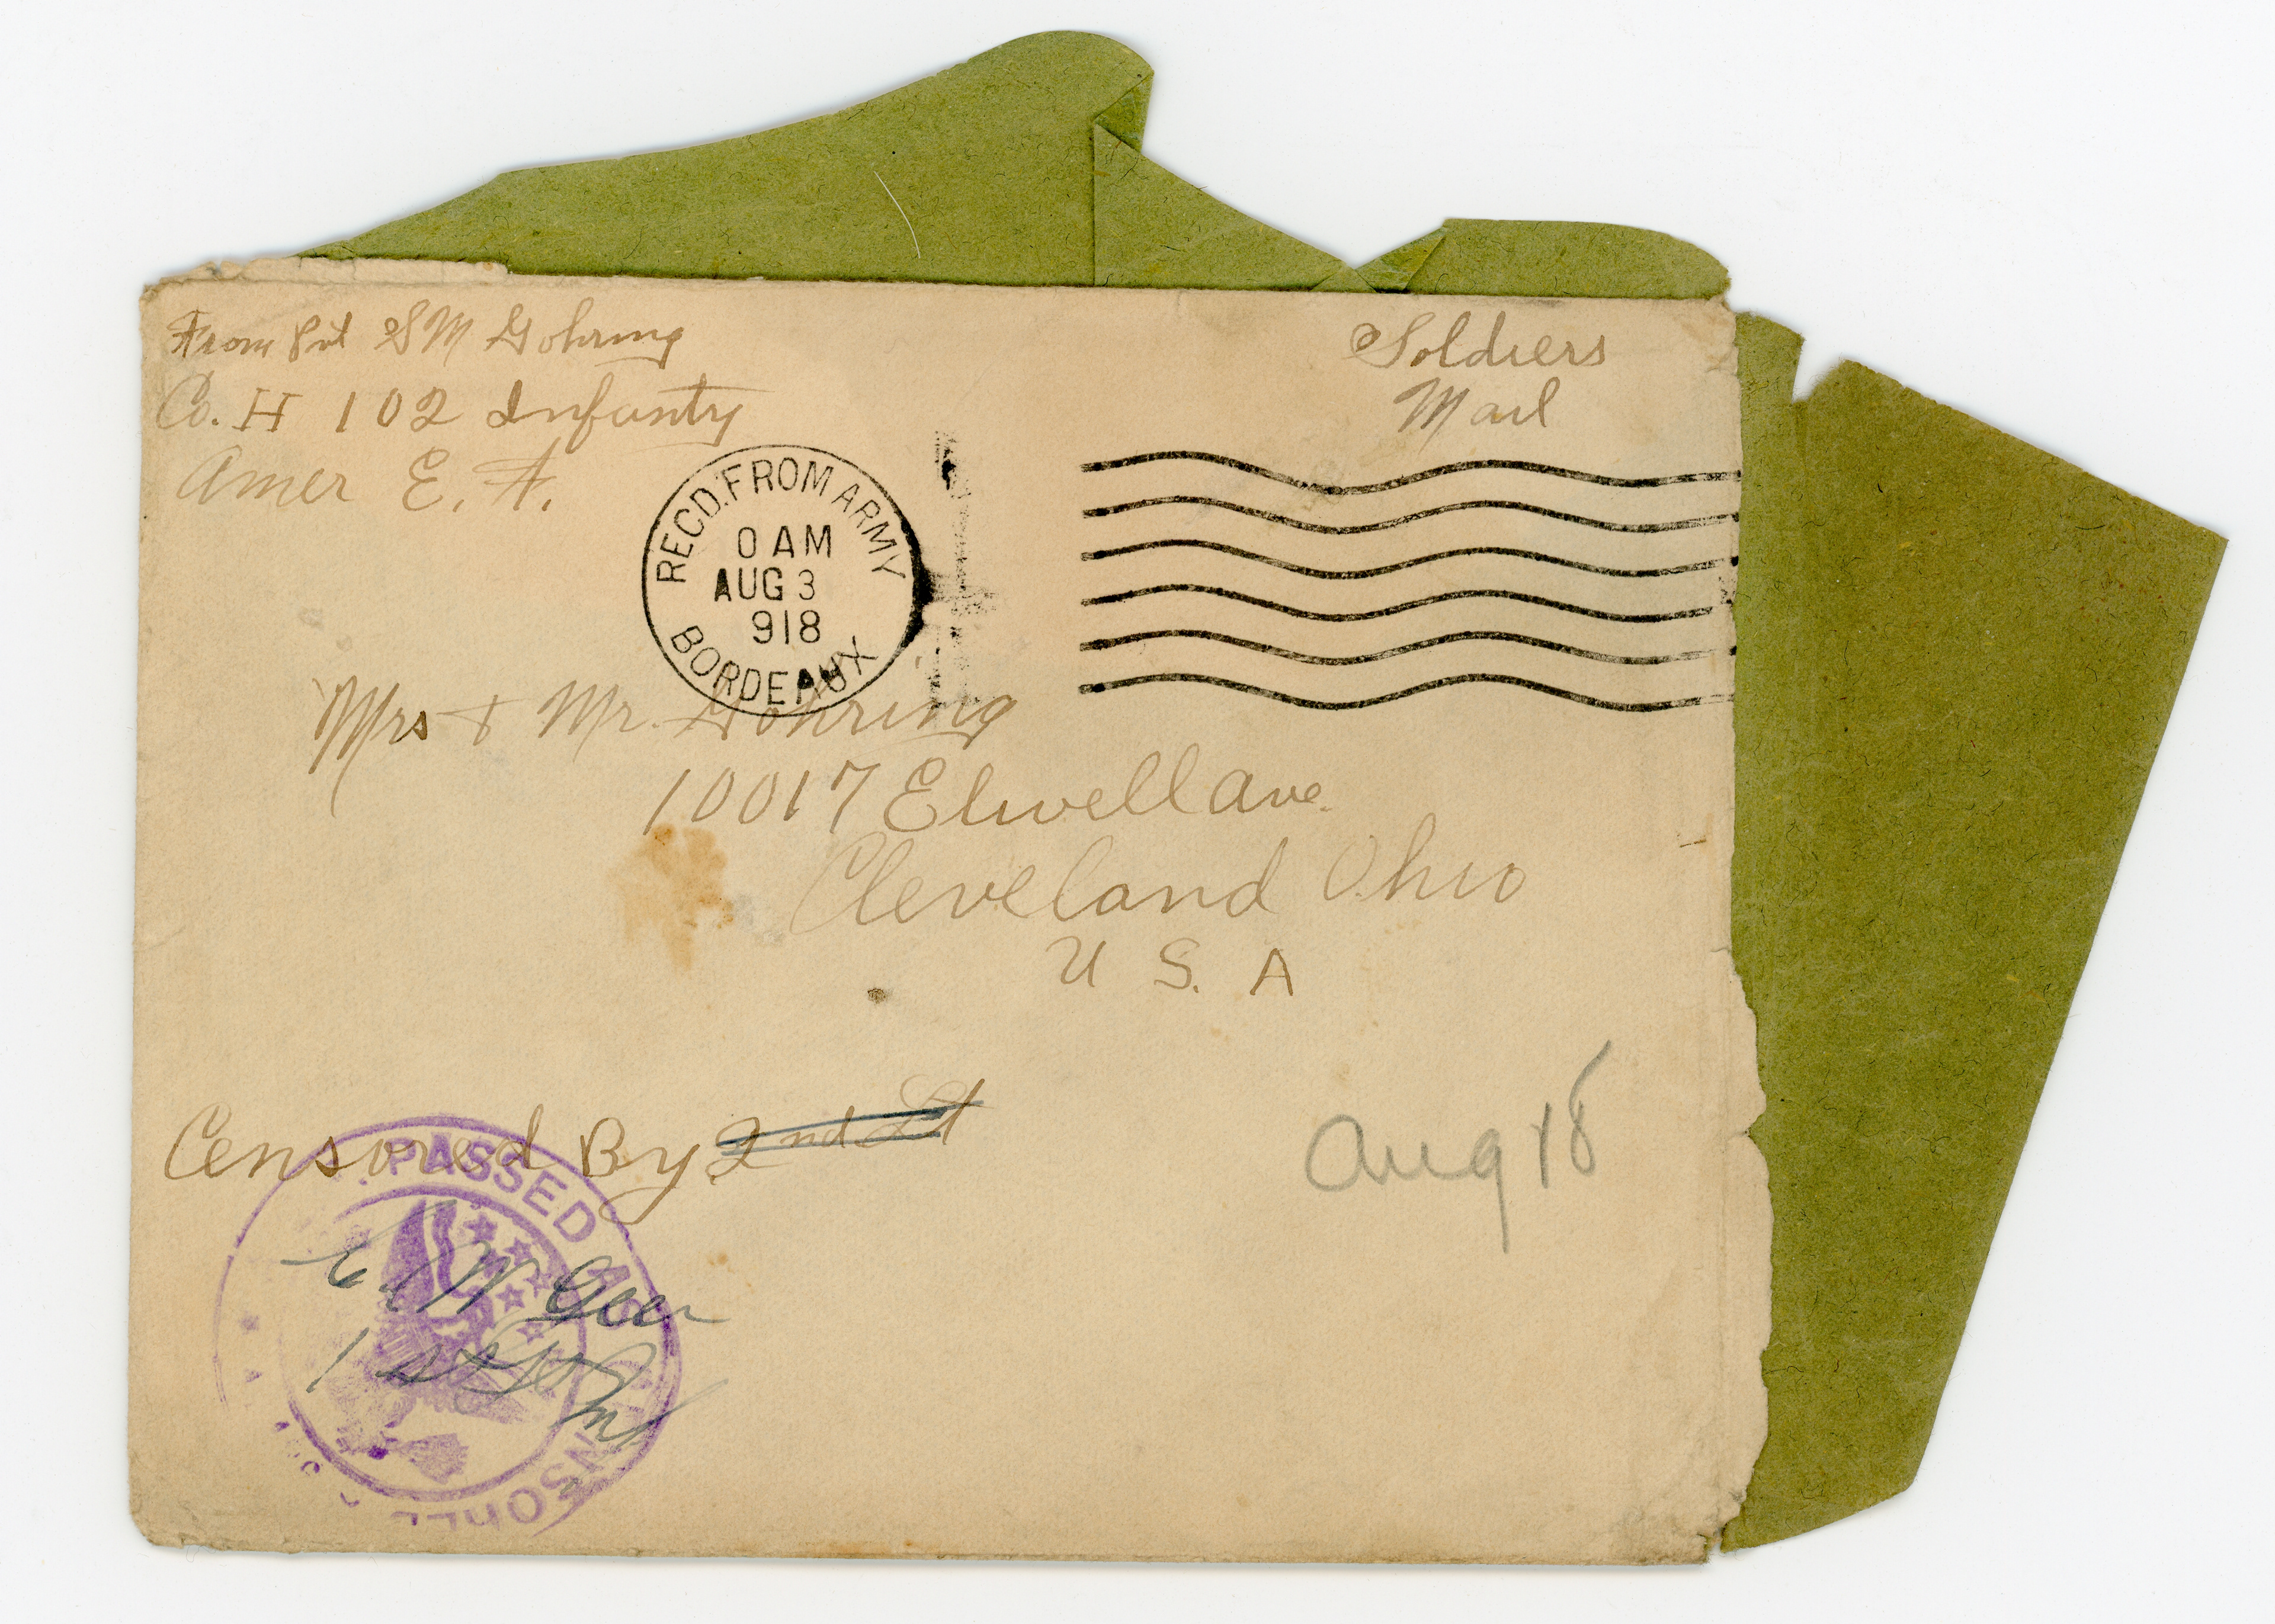 From Pvt S M Gohring
Co. H 102 Infanty
Amer E. F.
Soldiers
Mail
RECD. FROM ARMY
0 AM
AUG 3
918
BORDEAUX
Mrs & Mr. Gohring
10017 Elwell Ave.
Cleveland Ohio
U S. A
Censored By 2nd Lt
Aug 18
PASSED AS CENSORED
1st Lt